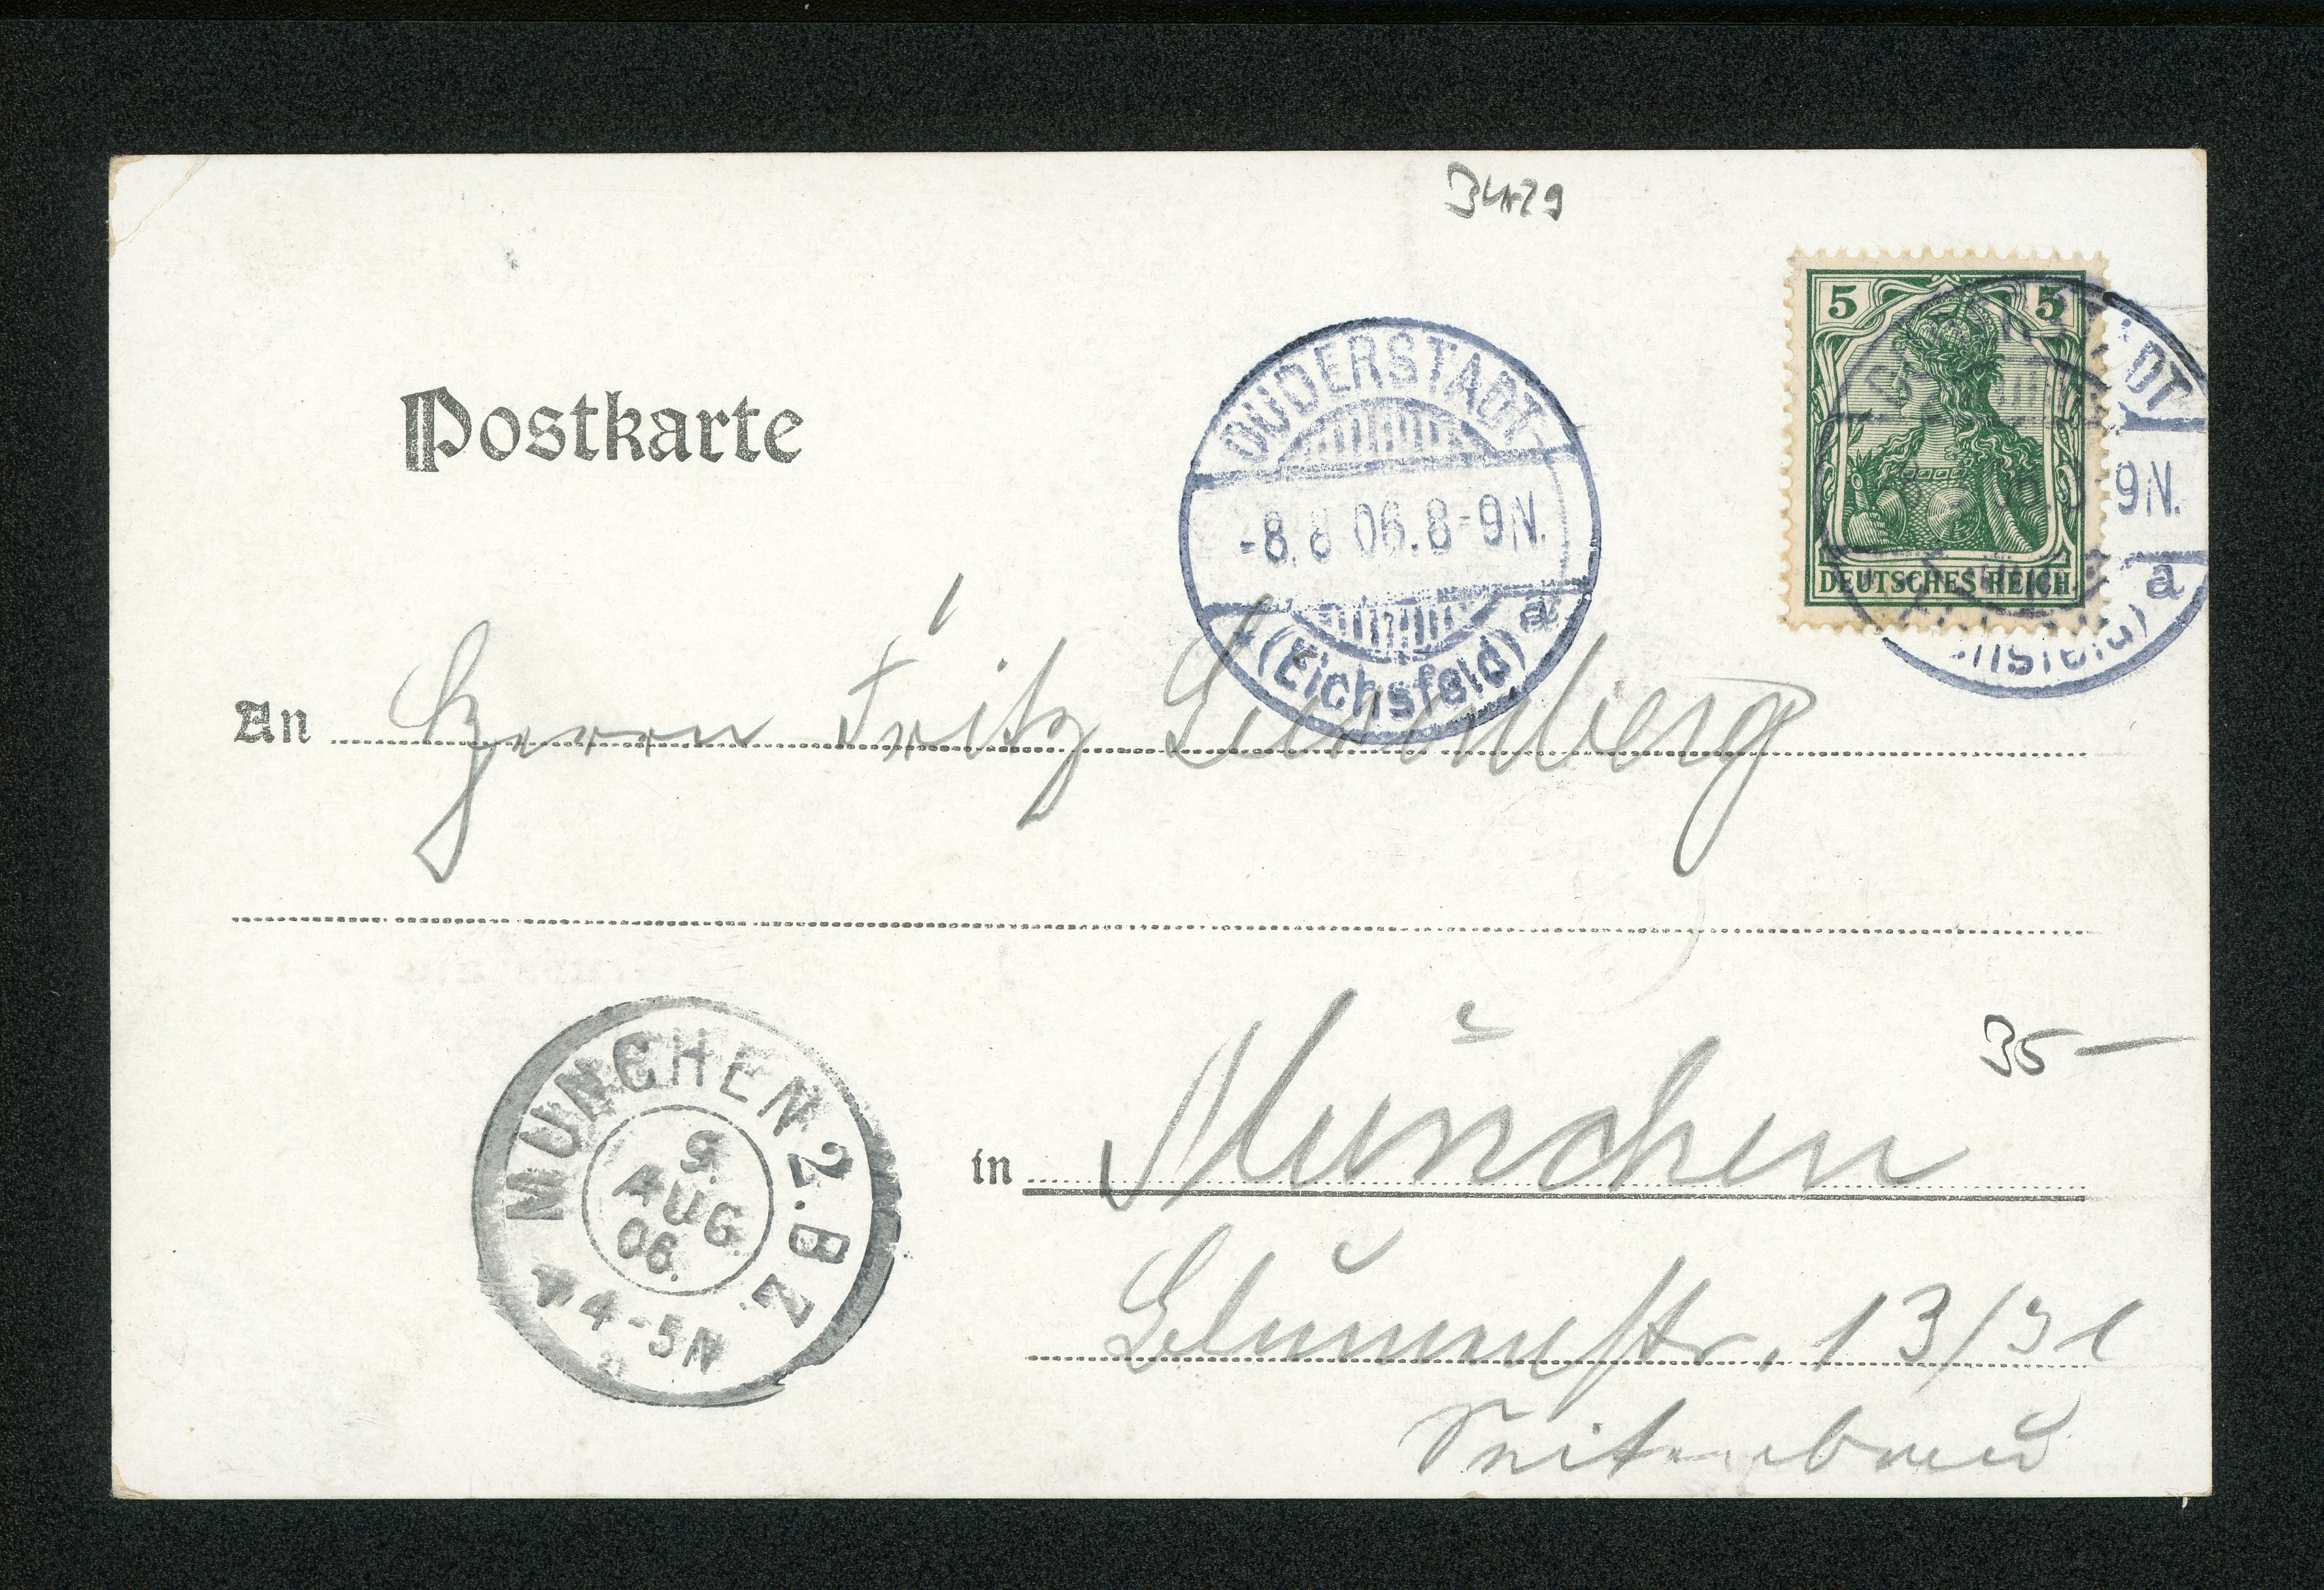 3479
5 5
DEUTSCHES REICH
DT
9N.
a
DUDERSTADT
-8.8 06.8-9N.
* (Eichsfeld) a
Postkarte
An Herrn Fritz
in München
35-
Blumenstr. 13/
Seitenbau
MÜNCHEN 2. B.Z.
9.
AUG
06.
4-5N